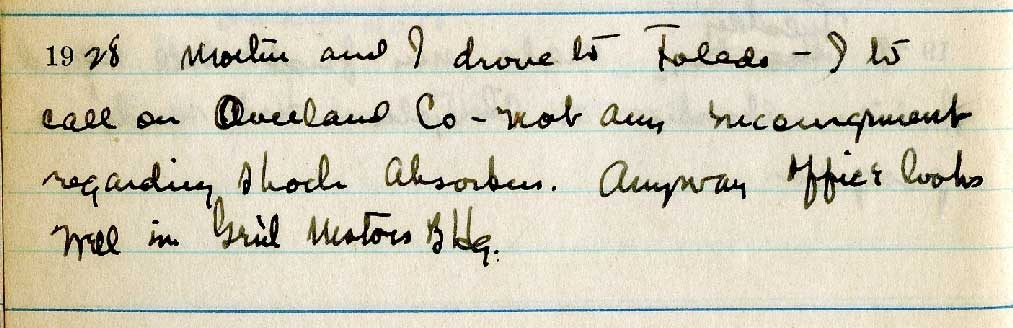 1928 Martin and I drove to Toledo - I to
call on Overland Co - not any encouragement
regarding Shock Absorbers. Anyway office looks
well in Motors Bldg.